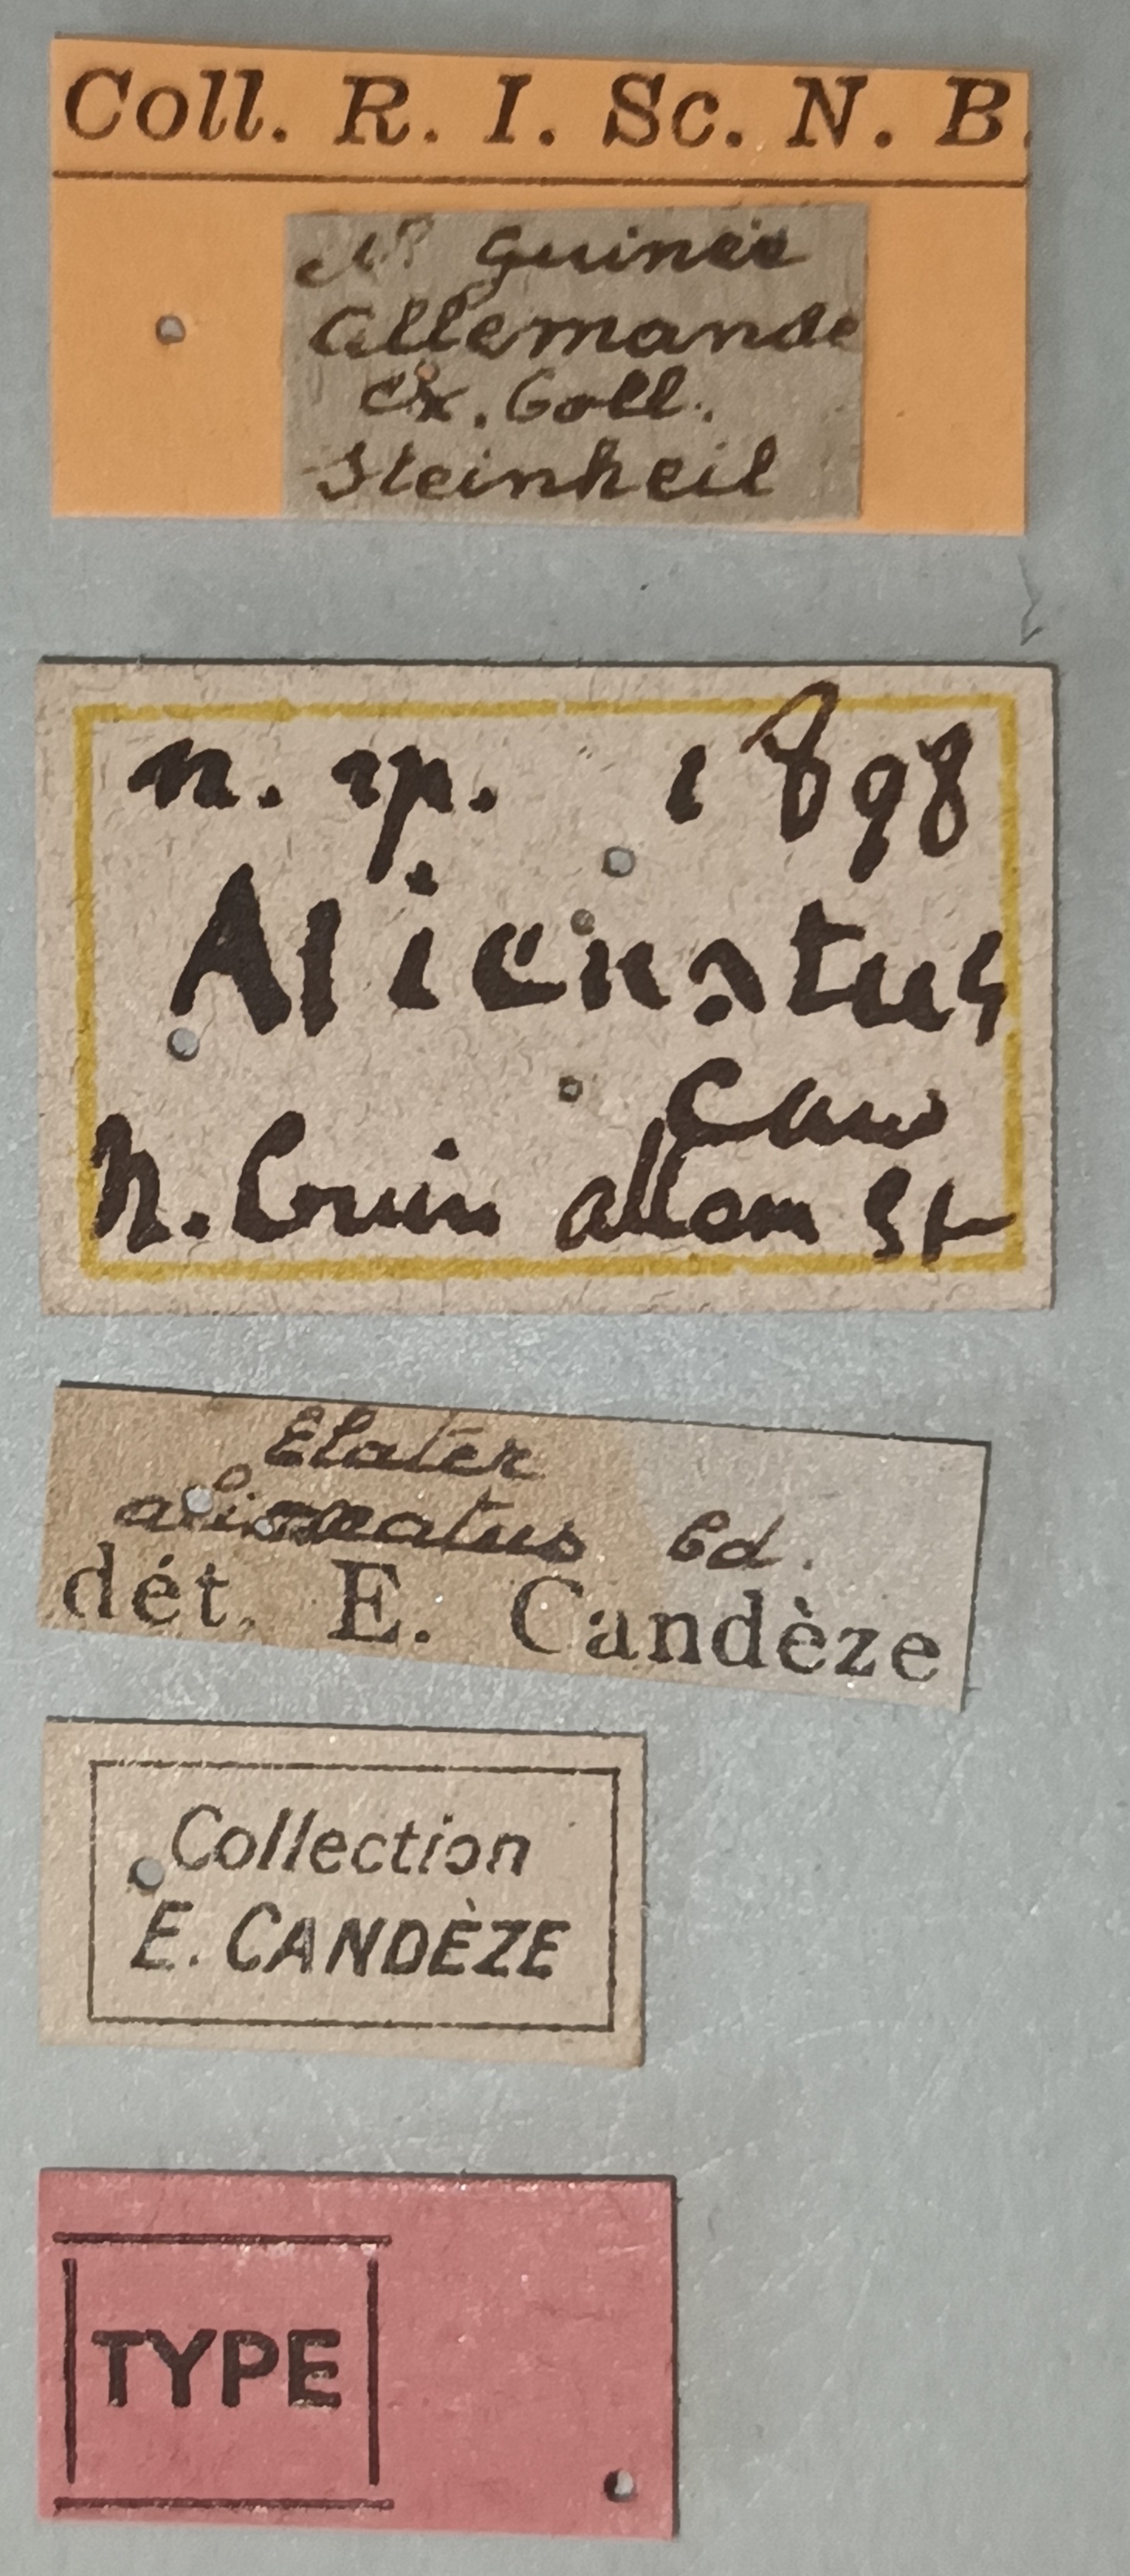 Coll. R. I. Sc. N. B.
Nlle Guinée
Allemande
ex. Coll.
Steinheil
n. sp. 1898
Alienatus
Cand
N. Guin allem St
Elater
alienatus Cd.
dét. E. Candèze
Collection
E. CANDÈZE
TYPE